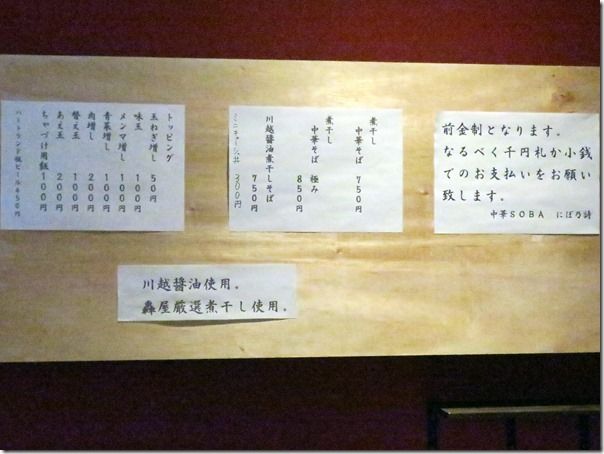 前金制となります。
なるべく千円札か小銭
でのお支払いをお願い
致します。
中華SOBA にぼ乃詩
煮干し
中華そば 750円
煮干し
中華そば 極み
850円
川越醤油煮干しそば
750円
ミニチャーシュー丼 300円
トッピング
玉ねぎ増し 50円
味玉 100円
メンマ増し 100円
青菜増し 100円
肉増し 200円
替え玉 100円
あえ玉 200円
ちゃづけ用飯 100円
ハートランド瓶ビール 450円
川越醬油使用。
轟屋厳選煮干し使用。